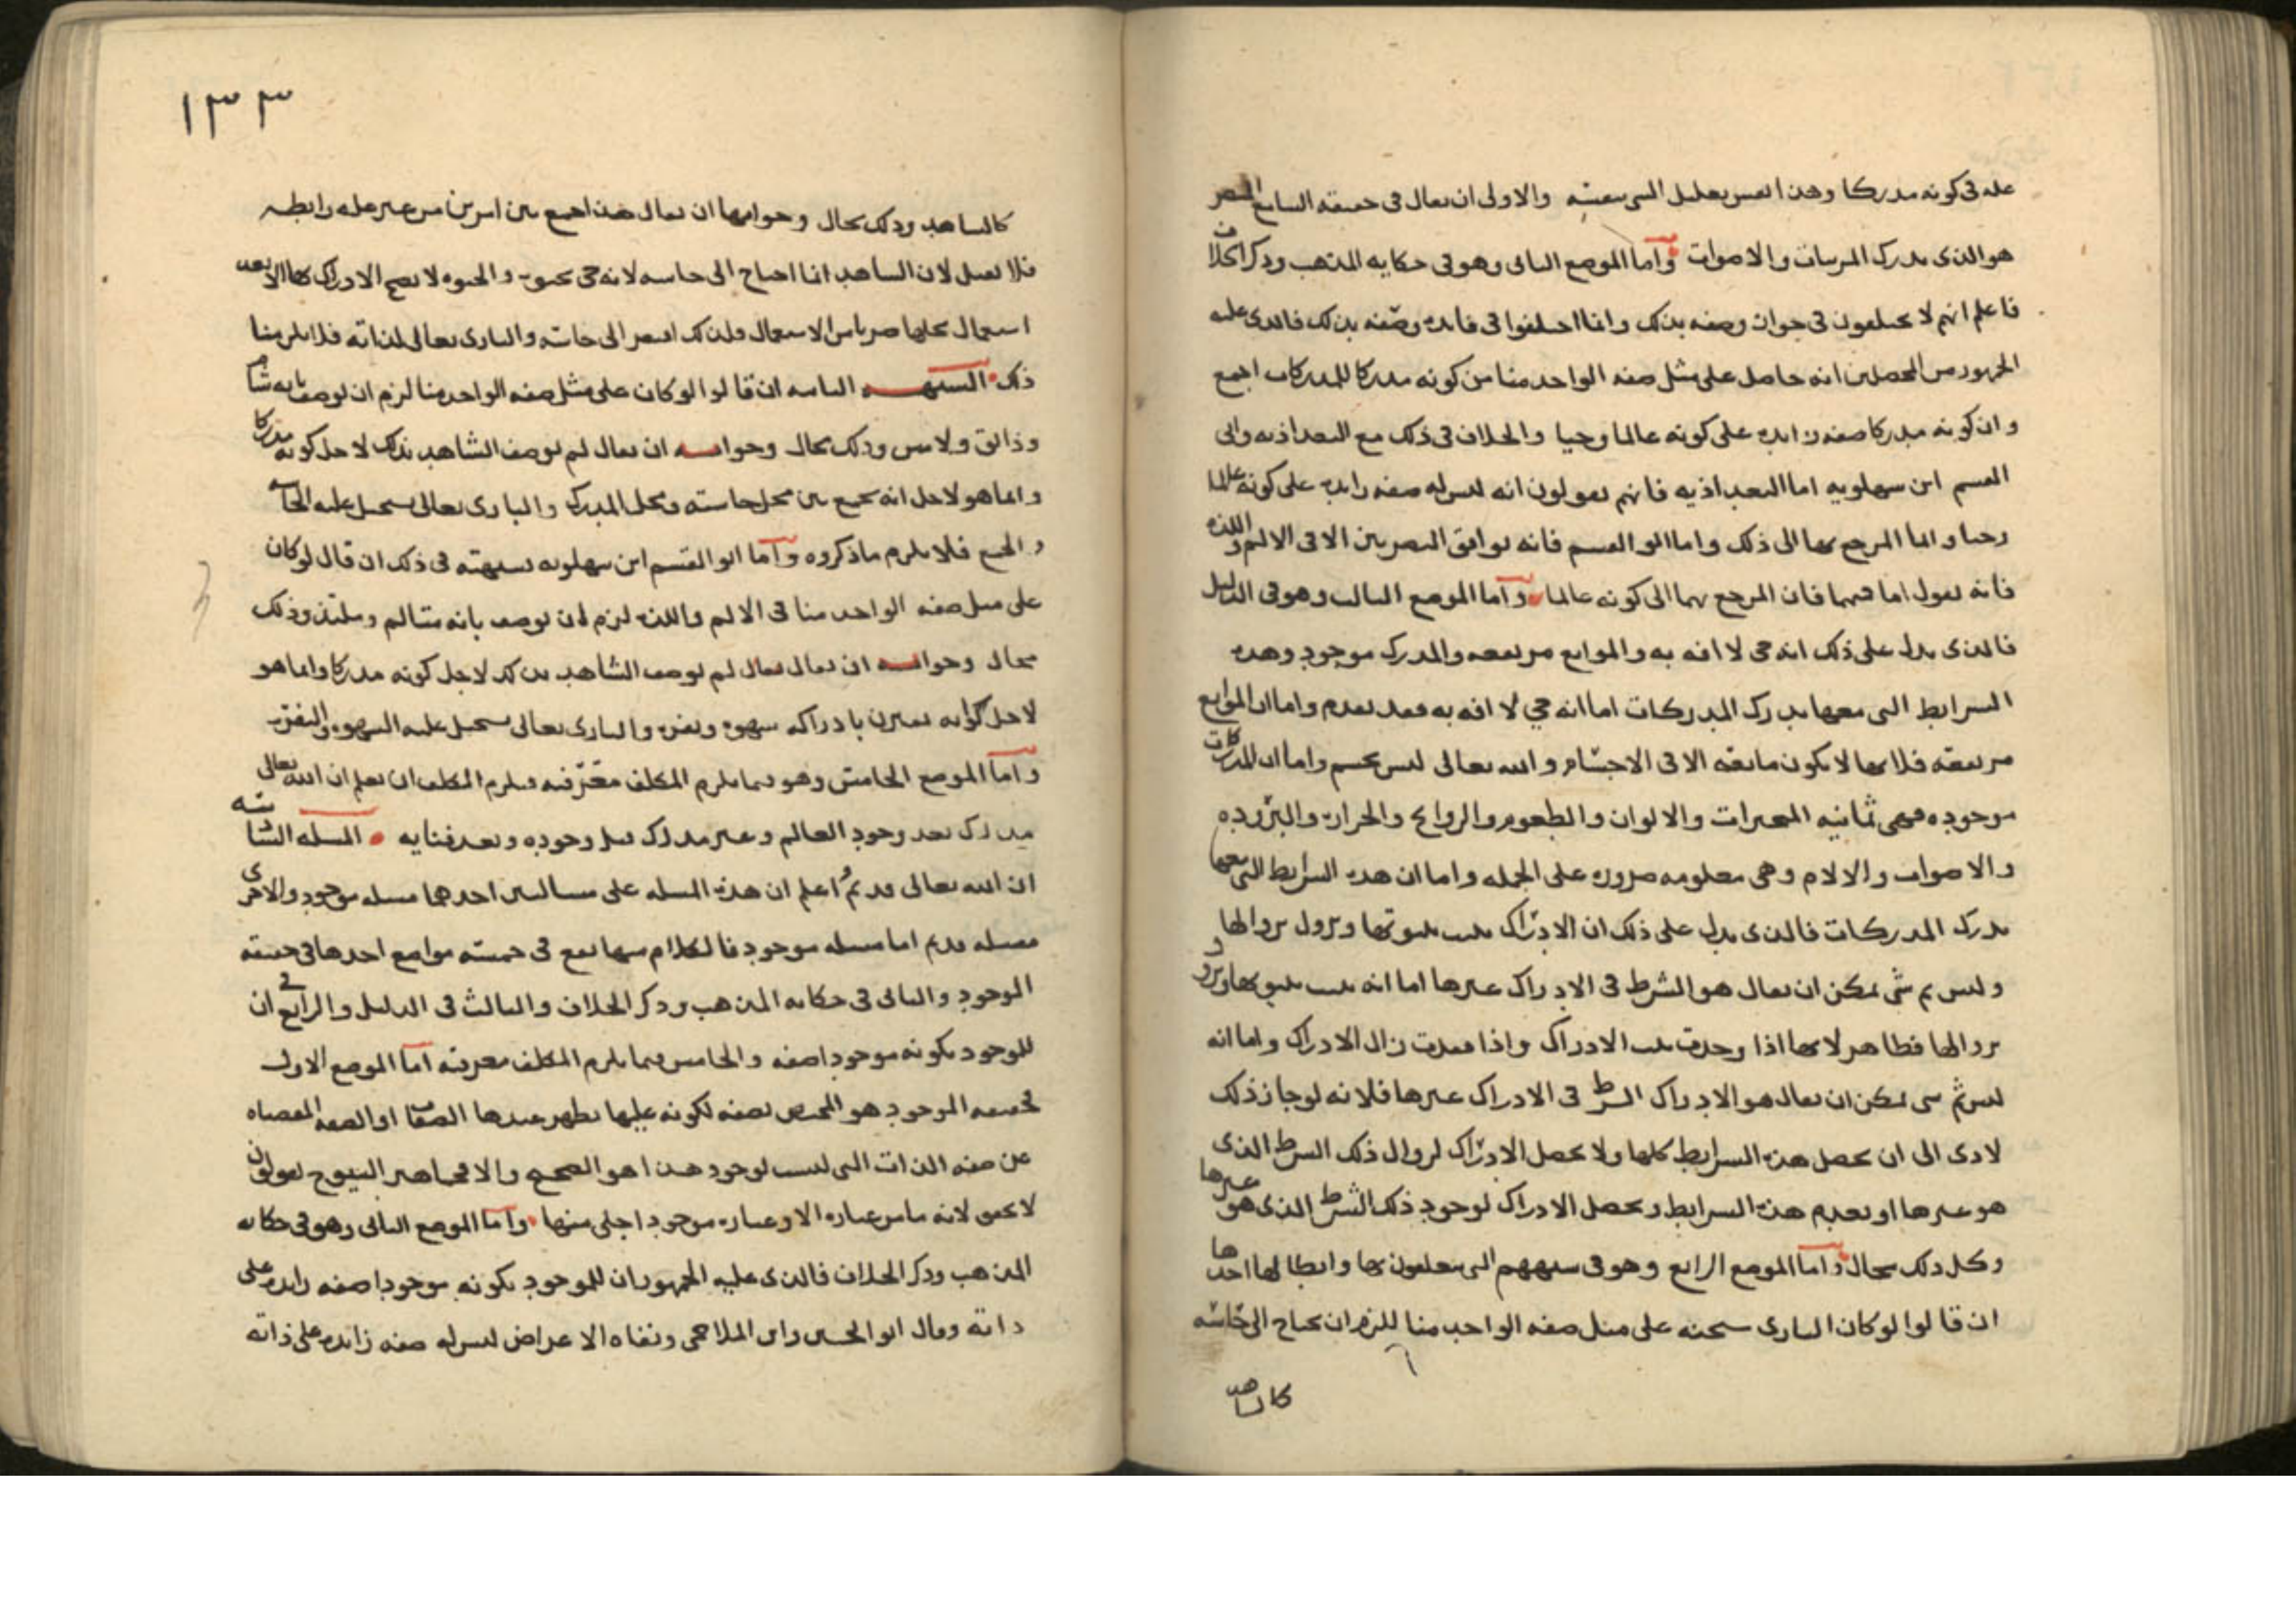 عله فى كونه مدركا وهذا نفس تعليل الشى بنفسه والاولى ان يقال فى حقيقة السامع المبصر
هو الذى يدرك المرييات والاصوات واما الموضع الثانى وهو فى حكاية المذهب وذكر الخلاف
فاعلم انهم لا يختلفون فى جواز وصفه بذلك وانما اختلفوا فى فايدة وصفه بذلك فالذى عليه
الجمهور من المحصلين انه حاصل على مثل صفة الواحد منا من كونه مدركا للمدركات اجمع
وان كونه مدركا صفة زايدة على كونه عالما وحيا والخلاف فى ذلك مع البغداذية وابى
القسم ابن سهلويه اما البغداذية فانهم يقولون انه ليس له صفة زايدة على كونه عالما
وحيا وانما المرجع بها الى ذلك واما ابو القسم فانه يوافق البصريين الا فى الالم واللذة
فانه يقول اما فيهما فان المرجع بهما الى كونه عالما واما الموضع الثالث وهو فى الدليل
فالذى يدل على ذلك انه حى لا افة به والموانع مرتفعة والمدرك موجود وهذه
الشرايط التى معها يدرك المدركات اما انه حي لا افة به فقد تقدم واما ان الموانع
مرتفعة فلانها لا تكون مانعة الا فى الاجسام والله تعالى ليس بجسم واما ان المدركات
موجودة فهى ثمانية المتحيزات والالوان والطعوم والروايح والحرارة والبرودة
والاصوات والالام وهى معلومة ضرورة على الجملة واما ان هذه الشرايط التى معها
يدرك المدركات فالذى يدل على ذلك ان الادراك يثبت بثبوتها ويزول بزوالها
وليس ثم شى يمكن ان يقال هو الشرط فى الادراك غيرها اما انه يثبت بثبوتها ويزول
بزوالها فظاهر لانها اذا وجدت ثبت الادراك واذا فقدت زال الادراك واما انه
ليس ثم شى يمكن ان يقال هو الادراك الشرط فى الادراك غيرها فلانه لو جاز ذلك
لادى الى ان تحصل هذه الشرايط كلها ولا يحصل الادراك لزوال ذلك الشرط الذى
هو غيرها او تعدم هذه الشرايط ويحصل الادراك لوجود ذلك الشرط الذى هو غيرها
وكل ذلك محال واما الموضع الرابع وهو فى شبههم التى يتعلقون بها وابطالها احدها
ان قالوا لو كان البارى سبحنه على مثل صفة الواحد منا للزم ان يحتاج الى حاسة
كالشاهد
١٣٣
كالشاهد وذلك محال وجوابها ان يقال هذا جمع بين امرين من غير علة رابطة
فلا يقبل لان الشاهد انما احتاج الى حاسة لانه حى بحيوة والحيوة لا يصح الادراك بها الا بعد
استعمال محلها ضربا من الاستعمال فلذلك افتقر الى حاسة والبارى تعالى لذاته فلا يلزمنا
ذلك الشبهة الثانية ان قالوا لو كان على مثل صفة الواحد منا لزم ان يوصف بانه شام
وذائق ولامس وذلك محال وجوابه ان يقال لم يوصف الشاهد بذلك لاجل كونه مدركا
وانما هو لاجل انه يجمع بين محل حاسته ومحل المدرك والبارى تعالى يستحيل عليه الحاسة
والجمع فلا يلزم ما ذكروه واما ابو القسم ابن سهلويه فشبهته فى ذلك ان قال لو كان
على مثل صفة الواحد منا فى الالم واللذة لزم ان يوصف بانه متالم وملتذ وذلك
محال وجوابه ان يقال يقال لم يوصف الشاهد بذلك لاجل كونه مدركا وانما هو
لاجل كونه يقترن بادراكه شهوة ونفرة والبارى تعالى يستحيل عليه الشهوة والنفرة
واما الموضع الخامس وهو فيما يلزم المكلف معرفته فيلزم المكلف ان يعلم ان الله تعالى
مدرك بعد وجود العالم وغير مدرك قبل وجوده وبعد فنايه المسلة الثامنة
ان الله تعالى قديم اعلم ان هذه المسلة على مسالتين احدهما مسلة موجود والاخرى
مسلة قديم اما مسلة موجود فالكلام منها يقع فى خمسة مواضع احدها فى حقيقة
الموجود والثانى فى حكاية المذهب وذكر الخلاف والثالث فى الدليل والرابع فى ان
للموجود بكونه موجودا صفة والخامس فيما يلزم المكلف معرفته اما الموضع الاول
فحقيقة الموجود هو المختص بصفة لكونه عليها تظهر عندها الصفات او الصفة المقتضاة
عن صفة الذات التى ليست لوجود هذا هو الصحيح والا فجماهير الشيوخ يقولون
لا يحد لانه ما من عبارة الا وعبارة موجود اجلى منها واما الموضع الثانى وهو فى حكاية
المذهب وذكر الخلاف فالذى عليه الجمهور ان للموجود بكونه موجودا صفة زايدة على
ذاته وقال ابو الحسين وابن الملاحمى ونفاة الاعراض ليس له صفة زايدة على ذاته